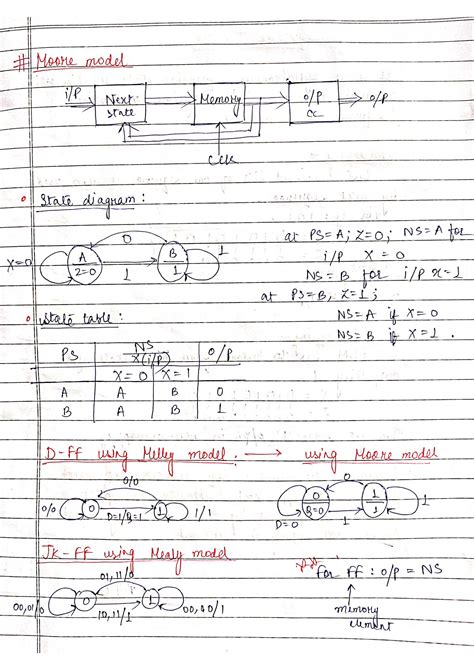 # Moore model
i/p Next state Memory o/p α o/p
Clk
• State diagram :
X=0 A Z=0 0 1 B 1 1
at PS=A; Z=0; NS=A for
i/p X = 0
NS = B for i/p x=1
at PS=B, Z=1;
NS=A if X=0
NS=B if X=1.
• State table :
PS NS o/p
X(i/p)
X=0 X=1
A A B 0
B A B 1
D-FF using Melley model. → using Moore model
0/0 0 0/0 D=1/Q=1 1 1/1
D=0 0 Q=0 0 1 1 1 1
JK-FF using Mealy model
01,11/0
00,01/0 0 10,11/1 1 00,00/1
for FF : o/p = NS
memory
element